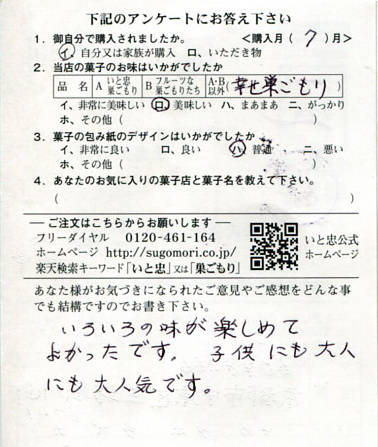 下記のアンケートにお答え下さい
1. 御自分で購入されましたか。 <購入月( 7 )月>
イ、自分又は家族が購入 ロ、いただき物
2. 当店の菓子のお味はいかがでしたか
品 名 A いと忠 巣ごもり B フルーツな 巣ごもりたち A・B 以外 (幸せ巣ごもり)
イ、非常に美味しい ロ、美味しい ハ、まあまあ ニ、がっかり
ホ、その他( )
3. 菓子の包み紙のデザインはいかがでしたか
イ、非常に良い ロ、良い ハ、普通 ニ、悪い
ホ、その他( )
4. あなたのお気に入りの菓子店と菓子名を教えて下さい。
( )
ご注文はこちらからお願いします
フリーダイヤル 0120-461-164
ホームページ http://sugomori.co.jp/
楽天検索キーワード「いと忠」又は「巣ごもり」
いと忠公式
ホームページ
あなた様がお気づきになられたご意見やご感想をどんな事
でも結構ですのでお書き下さい。
いろいろの味が楽しめて
よかったです。 子供にも大人
にも大人気です。